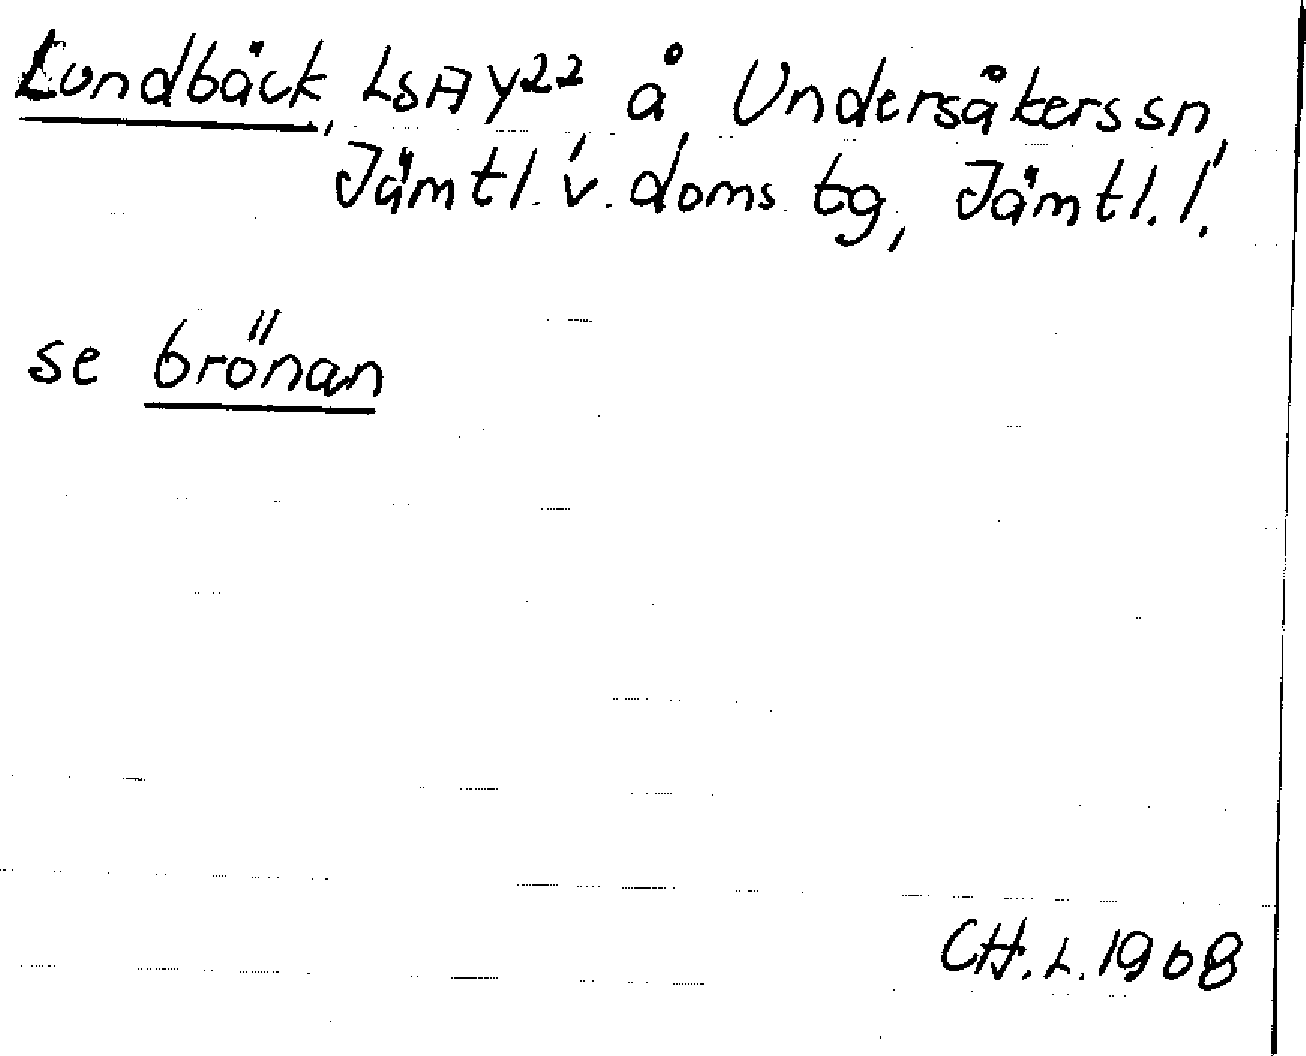 Lundbäck, LSA Y22 å Undersåkers sn,
Jämtl. v. doms. tg, Jämtl. l.
se brőnan
CH. L. 1908